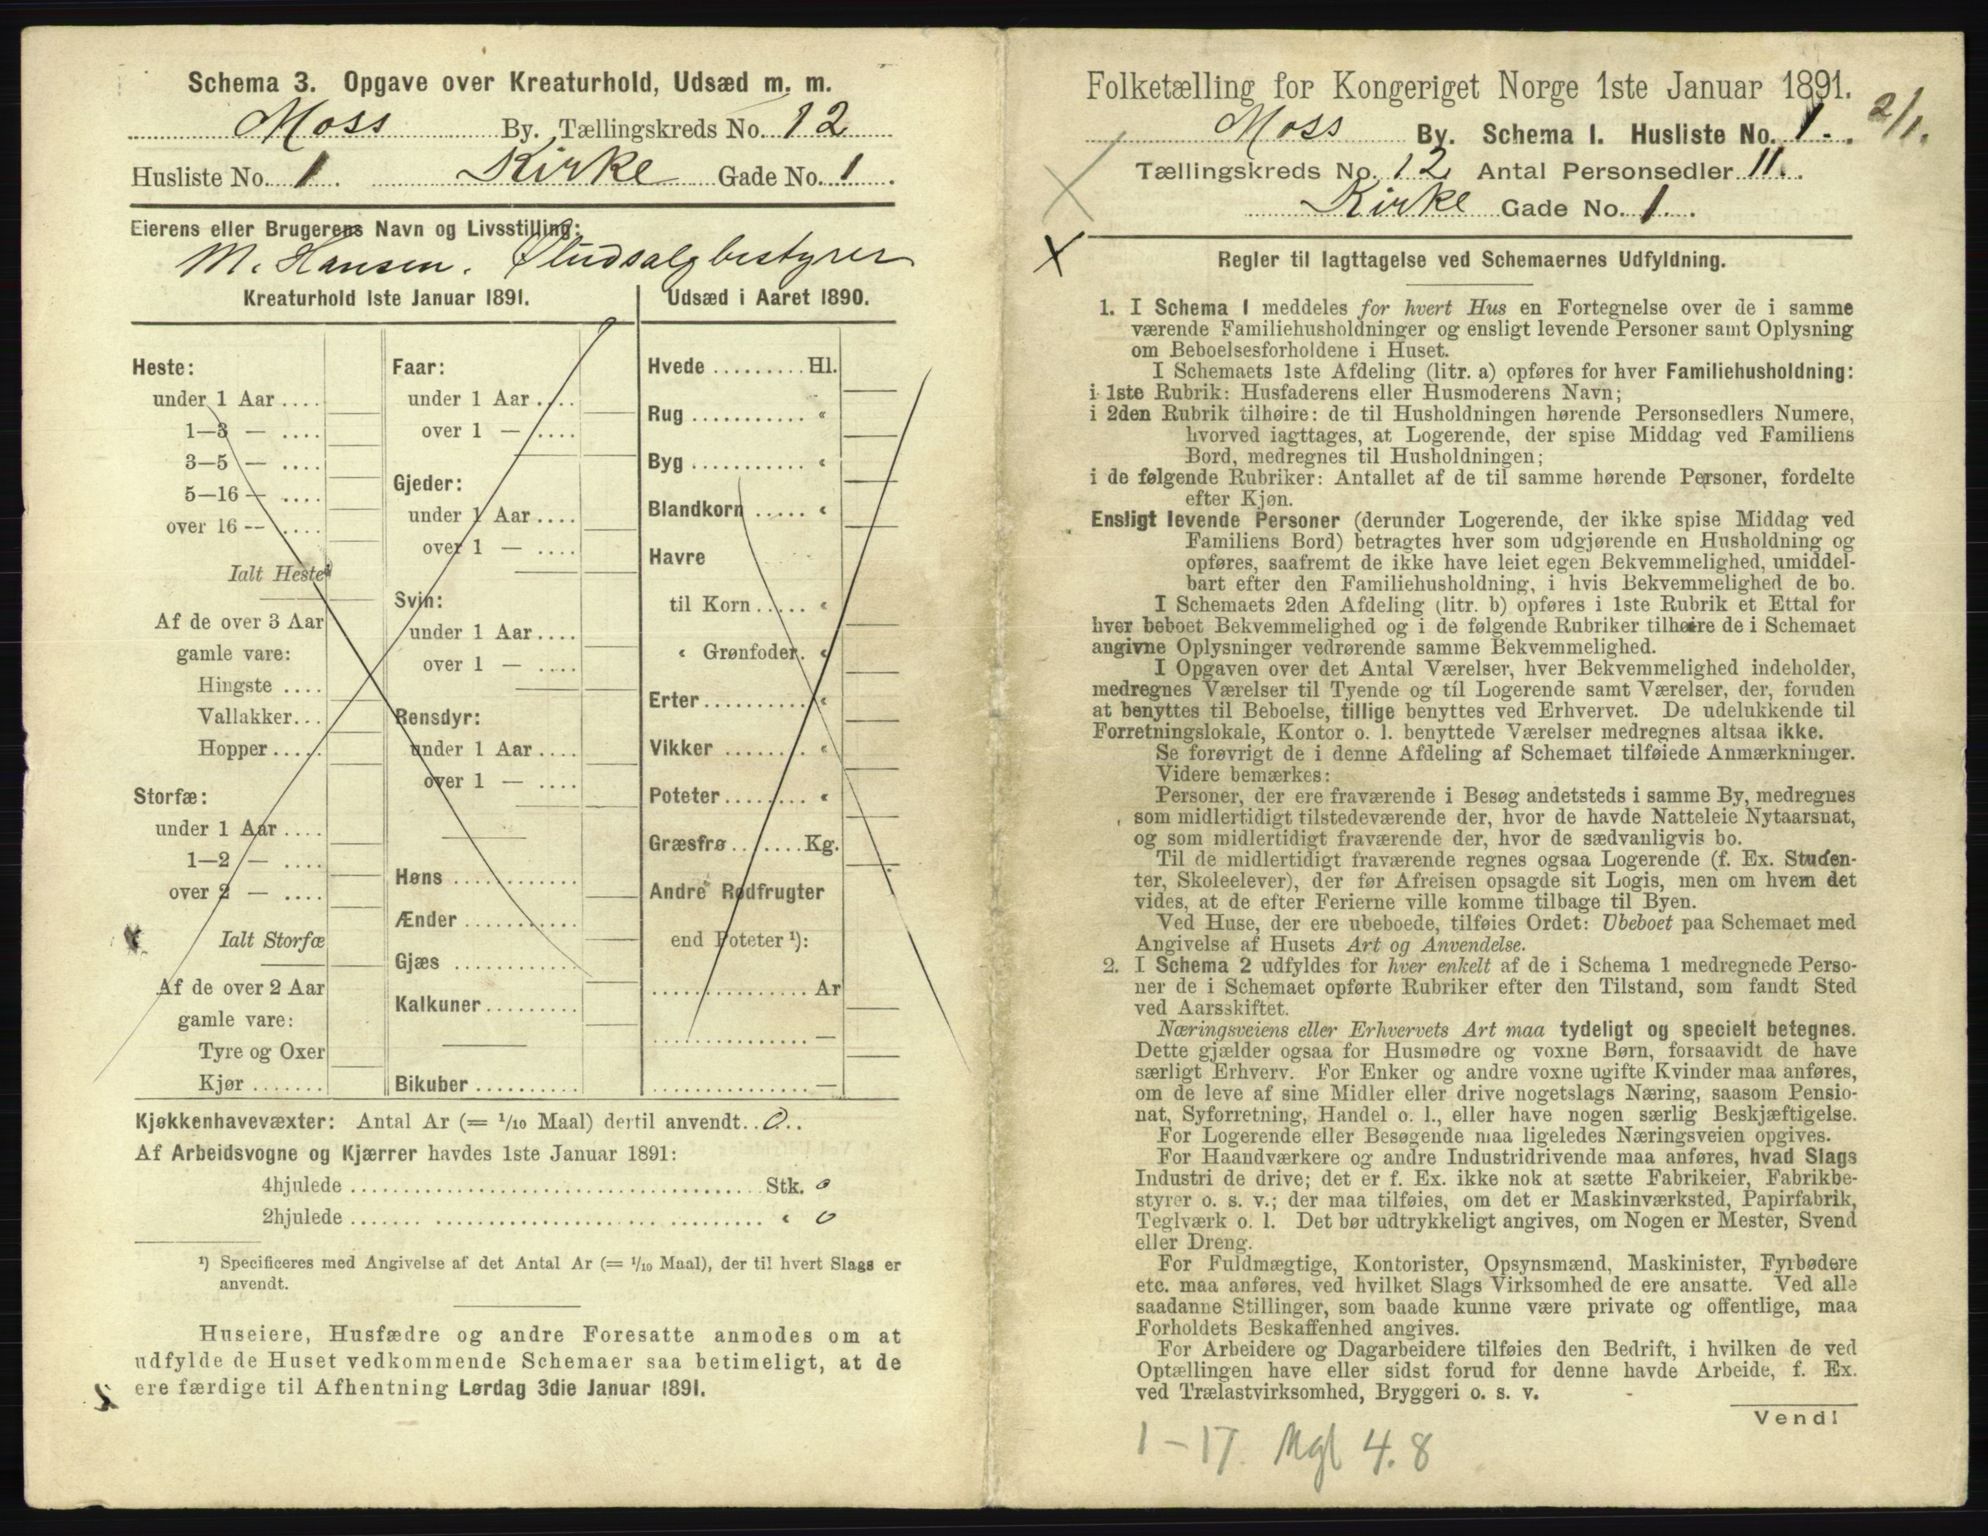 Schema 3. Opgave over Kreaturhold, Udsæd m. m.
Moss By. Tællingskreds No. 12
Husliste No. 1. Kirke Gade No. 1.
Eierens eller Brugerens Navn og Livsstilling:
M. Hansen. Øludsalgbestyrer
Kreaturhold 1ste Januar 1891.
Heste:
under 1 Aar ....
1—3 — ....
3—5 — ....
5—16 — ....
over 16 — ....
Ialt Heste
Af de over 3 Aar
gamle vare:
Hingste ....
Vallakker...
Hopper.....
Storfæ:
under 1 Aar ....
1—2 — ....
over 2 — ....
Ialt Storfæ
Af de over 2 Aar
gamle vare:
Tyre og Oxer
Kjør .......
Faar:
under 1 Aar ....
over 1 — ....
Gjeder:
under 1 Aar ....
over 1 — ....
Svin:
under 1 Aar ....
over 1 — ....
Rensdyr:
under 1 Aar ....
over 1 — ....
Høns ............
Ænder ............
Gjæs ............
Kalkuner .........
Bikuber ..........
Udsæd i Aaret 1890.
Hvede ......... Hl.
Rug ........... «
Byg ........... «
Blandkorn ..... «
Havre
til Korn ..... «
« Grønfoder. «
Erter ......... «
Vikker ........ «
Poteter ....... «
Græsfrø ....... Kg.
Andre Rodfrugter
end Poteter ¹):
............... Ar
............... —
............... —
Kjøkkenhavevæxter: Antal Ar (= 1/10 Maal) dertil anvendt. . 0. .
Af Arbeidsvogne og Kjærrer havdes 1ste Januar 1891:
4hjulede ........................................ Stk. 0
2hjulede ........................................ « 0
¹) Specificeres med Angivelse af det Antal Ar (= 1/10 Maal), der til hvert Slags er
anvendt.
Huseiere, Husfædre og andre Foresatte anmodes om at
udfylde de Huset vedkommende Schemaer saa betimeligt, at de
ere færdige til Afhentning Lørdag 3die Januar 1891.
Folketælling for Kongeriget Norge 1ste Januar 1891.
2/1.
Moss By. Schema 1. Husliste No. 1.
Tællingskreds No. 12 Antal Personsedler 11.
Kirke Gade No. 1.
Regler til Iagttagelse ved Schemaernes Udfyldning.
1. I Schema 1 meddeles for hvert Hus en Fortegnelse over de i samme
værende Familiehusholdninger og ensligt levende Personer samt Oplysning
om Beboelsesforholdene i Huset.
I Schemaets 1ste Afdeling (litr. a) opføres for hver Familiehusholdning:
i 1ste Rubrik: Husfaderens eller Husmoderens Navn;
i 2den Rubrik tilhøire: de til Husholdningen hørende Personsedlers Numere,
hvorved iagttages, at Logerende, der spise Middag ved Familiens
Bord, medregnes til Husholdningen;
i de følgende Rubriker: Antallet af de til samme hørende Personer, fordelte
efter Kjøn.
Ensligt levende Personer (derunder Logerende, der ikke spise Middag ved
Familiens Bord) betragtes hver som udgjørende en Husholdning og
opføres, saafremt de ikke have leiet egen Bekvemmelighed, umiddel-
bart efter den Familiehusholdning, i hvis Bekvemmelighed de bo.
I Schemaets 2den Afdeling (litr. b) opføres i 1ste Rubrik et Ettal for
hver beboet Bekvemmelighed og i de følgende Rubriker tilhøire de i Schemaet
angivne Oplysninger vedrørende samme Bekvemmelighed.
I Opgaven over det Antal Værelser, hver Bekvemmelighed indeholder,
medregnes Værelser til Tyende og til Logerende samt Værelser, der, foruden
at benyttes til Beboelse, tillige benyttes ved Erhvervet. De udelukkende til
Forretningslokale, Kontor o. l. benyttede Værelser medregnes altsaa ikke.
Se forøvrigt de i denne Afdeling af Schemaet tilføiede Anmærkninger.
Videre bemærkes:
Personer, der ere fraværende i Besøg andetsteds i samme By, medregnes
som midlertidigt tilstedeværende der, hvor de havde Natteleie Nytaarsnat,
og som midlertidigt fraværende der, hvor de sædvanligvis bo.
Til de midlertidigt fraværende regnes ogsaa Logerende (f. Ex. Studen-
ter, Skoleelever), der før Afreisen opsagde sit Logis, men om hvem det
vides, at de efter Ferierne ville komme tilbage til Byen.
Ved Huse, der ere ubeboede, tilføies Ordet: Ubeboet paa Schemaet med
Angivelse af Husets Art og Anvendelse.
2. I Schema 2 udfyldes for hver enkelt af de i Schema 1 medregnede Perso-
ner de i Schemaet opførte Rubriker efter den Tilstand, som fandt Sted
ved Aarsskiftet.
Næringsveiens eller Erhvervets Art maa tydeligt og specielt betegnes.
Dette gjælder ogsaa for Husmødre og voxne Børn, forsaavidt de have
særligt Erhverv. For Enker og andre voxne ugifte Kvinder maa anføres,
om de leve af sine Midler eller drive nogetslags Næring, saasom Pensio-
nat, Syforretning, Handel o. l., eller have nogen særlig Beskjæftigelse.
For Logerende eller Besøgende maa ligeledes Næringsveien opgives.
For Haandværkere og andre Industridrivende maa anføres, hvad Slags
Industri de drive; det er f. Ex. ikke nok at sætte Fabrikeier, Fabrikbe-
styrer o. s. v.; der maa tilføies, om det er Maskinværksted, Papirfabrik,
Teglværk o. l. Det bør udtrykkeligt angives, om Nogen er Mester, Svend
eller Dreng.
For Fuldmægtige, Kontorister, Opsynsmænd, Maskinister, Fyrbødere
etc. maa anføres, ved hvilket Slags Virksomhed de ere ansatte. Ved alle
saadanne Stillinger, som baade kunne være private og offentlige, maa
Forholdets Beskaffenhed angives.
For Arbeidere og Dagarbeidere tilføies den Bedrift, i hvilken de ved
Optællingen have eller sidst forud for denne havde Arbeide, f. Ex.
ved Trælastvirksomhed, Bryggeri o. s. v.
Vend!
1-17 Mgl 4.8